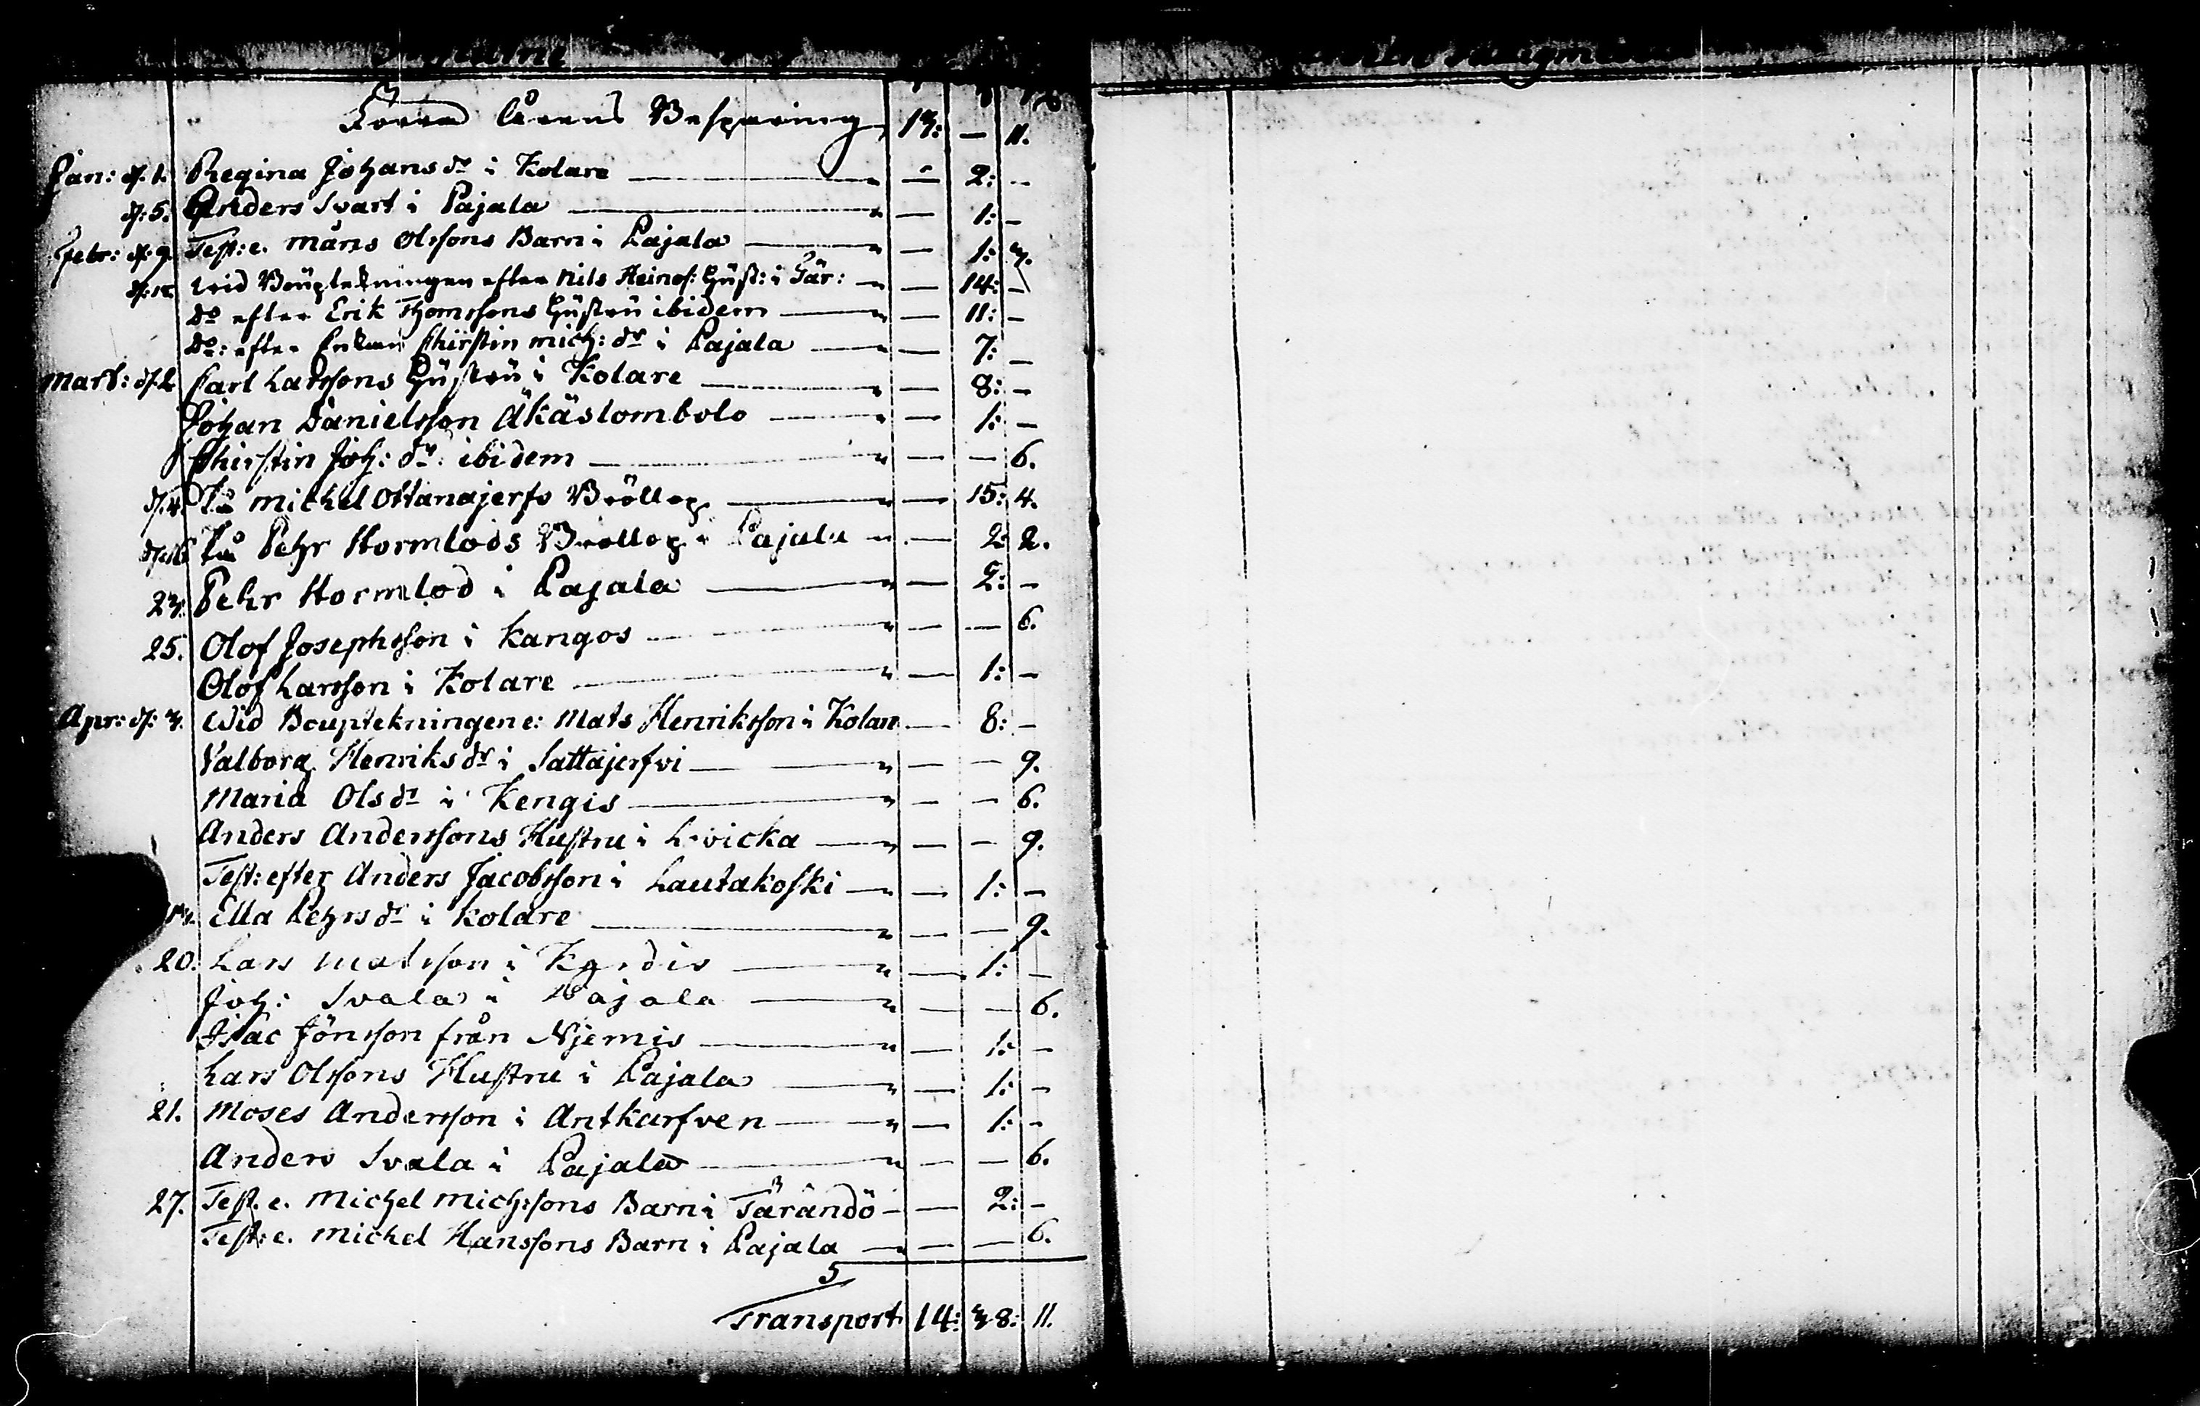 Förra Årens Besparing 13: — 11.
Jan: d. 1. Regina Johans dr i Kolare — 2: —
d: 5. Anders Svart i Pajala — 1: —
Febr: d: 9. Test: e. Måns Olssons Barn i Pajala — 1: 3.
Wid Boupteckningen efter Nils Heinos: Hust: i Tär: — 14: —
do efter Erik Thomssons Hustru ibidem — 11: —
do: efter Enkan Chirstin Mich: dr i Pajala — 7: —
Mart: d. 2. Carl Larssons Hustru i Kolare — 8: —
Johan Danielsson Äkäslombolo — 1: —
Chirstin Joh: dr: ibidem — — 6.
d. 4. På Michel Ottanajerfs Bröllop — 15: 4.
På Pehr Stormlods Bröllop i Pajala — 2: 2.
23. Pehr Stormlod i Pajala — 2: —
25. Olof Josephsson i Kangos — — 6.
Olof Larsson i Kolare — 1: —
Apr: d: 3. Wid Bouptekningen e: Mats Henriksson i Kolare — 8: —
Valborg Henriks dr i Sattajerfvi — — 9.
Maria Ols dr i Kengis — — 6.
Anders Anderssons Hustru i Lovicka — — 9.
Test: efter Anders Jacobsson i Lautakoski — 1: —
13. Ella Pehrs dr i Kolare — — 9.
20. Lars Matsson i Kardis — 1: —
Joh: Svala i Pajala — — 6.
Isac Jönsson från Njemis — 1: —
Lars Olssons Hustru i Pajala — 1: —
21. Moses Andersson i Antkurfven — 1: —
Anders Svala i Pajala — — 6.
27. Test. e. Michel Michssons Barn i Tärändö — 2: —
Test: e. Michel Hanssons Barn i Pajala — — 6.
Transport 14: 38: 11.